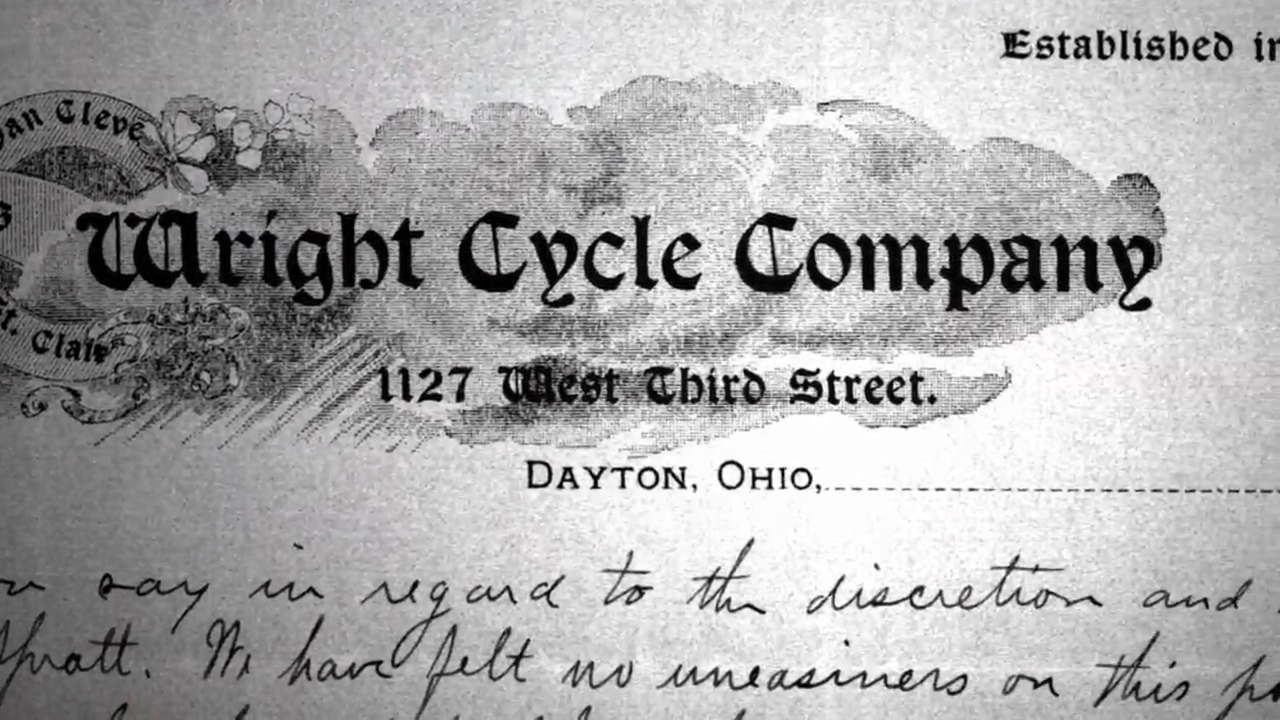 Established in
Van Cleve
Wright Cycle Company
St. Clair
1127 West Third Street.
DAYTON, OHIO,
say in regard to the discretion and
Spratt. We have felt no uneasiness on this